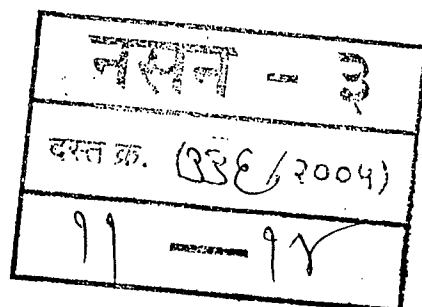 नसन - ३
दस्त क्र. (३३६/२००५)
११ — १४